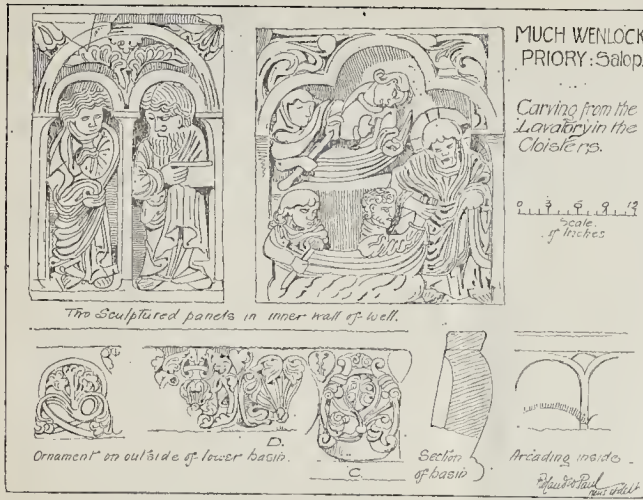 MUCH WENLOCK
PRIORY: Salop.
Carving from the
Lavatory in the
Cloisters.
0 3 6 9 12
Scale
of Inches
Two Sculptured panels in inner wall of well.
D.
Ornament on outside of lower basin.
C.
Section
of basin
Arcading inside
Roland W Paul